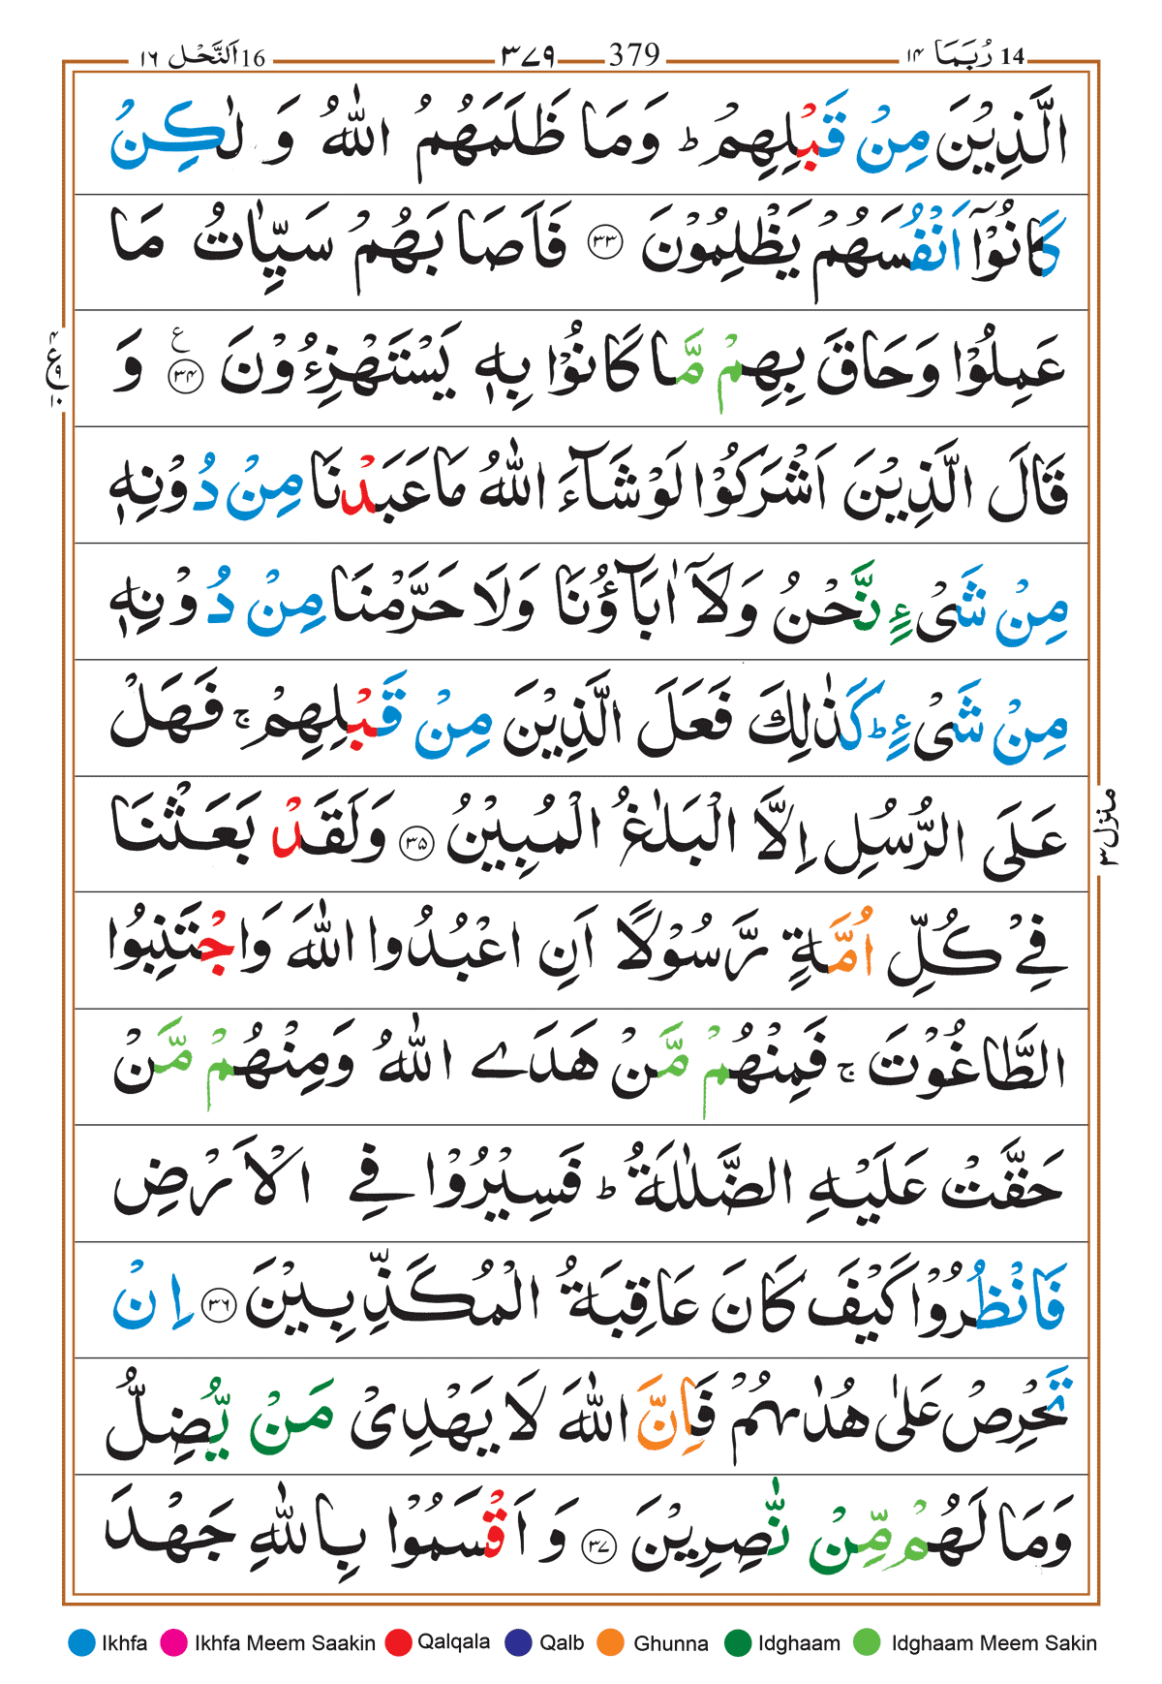 16 اَلنَّحْل ١٦ ٣٧٩ 379 14 رُبَمَا ١٤
الَّذِيْنَ مِنْ قَبْلِهِمْ ؕ وَمَا ظَلَمَهُمُ اللّٰهُ وَ لٰكِنْ
كَانُوْۤا اَنْفُسَهُمْ يَظْلِمُوْنَ ٣٣ فَاَصَابَهُمْ سَيِّاٰتُ مَا
عَمِلُوْا وَحَاقَ بِهِمْ مَّا كَانُوْا بِهٖ يَسْتَهْزِءُوْنَ ٣٤ ع وَ
قَالَ الَّذِيْنَ اَشْرَكُوْا لَوْ شَآءَ اللّٰهُ مَا عَبَدْنَا مِنْ دُوْنِهٖ
مِنْ شَىْءٍ نَّحْنُ وَلَاۤ اٰبَآؤُنَا وَلَا حَرَّمْنَا مِنْ دُوْنِهٖ
مِنْ شَىْءٍ ؕ كَذٰلِكَ فَعَلَ الَّذِيْنَ مِنْ قَبْلِهِمْ ۚ فَهَلْ
عَلَى الرُّسُلِ اِلَّا الْبَلٰغُ الْمُبِيْنُ ٣٥ وَلَقَدْ بَعَثْنَا
فِىْ كُلِّ اُمَّةٍ رَّسُوْلًا اَنِ اعْبُدُوا اللّٰهَ وَاجْتَنِبُوا
الطَّاغُوْتَ ۚ فَمِنْهُمْ مَّنْ هَدَى اللّٰهُ وَمِنْهُمْ مَّنْ
حَقَّتْ عَلَيْهِ الضَّلٰلَةُ ؕ فَسِيْرُوْا فِى الْاَرْضِ
فَانْظُرُوْا كَيْفَ كَانَ عَاقِبَةُ الْمُكَذِّبِيْنَ ٣٦ اِنْ
تَحْرِصْ عَلٰى هُدٰىهُمْ فَاِنَّ اللّٰهَ لَا يَهْدِىْ مَنْ يُّضِلُّ
وَمَا لَهُمْ مِّنْ نّٰصِرِيْنَ ٣٧ وَ اَقْسَمُوْا بِاللّٰهِ جَهْدَ
٤ ع ٩ ١٠
منزل ٣
Ikhfa Ikhfa Meem Saakin Qalqala Qalb Ghunna Idghaam Idghaam Meem Sakin